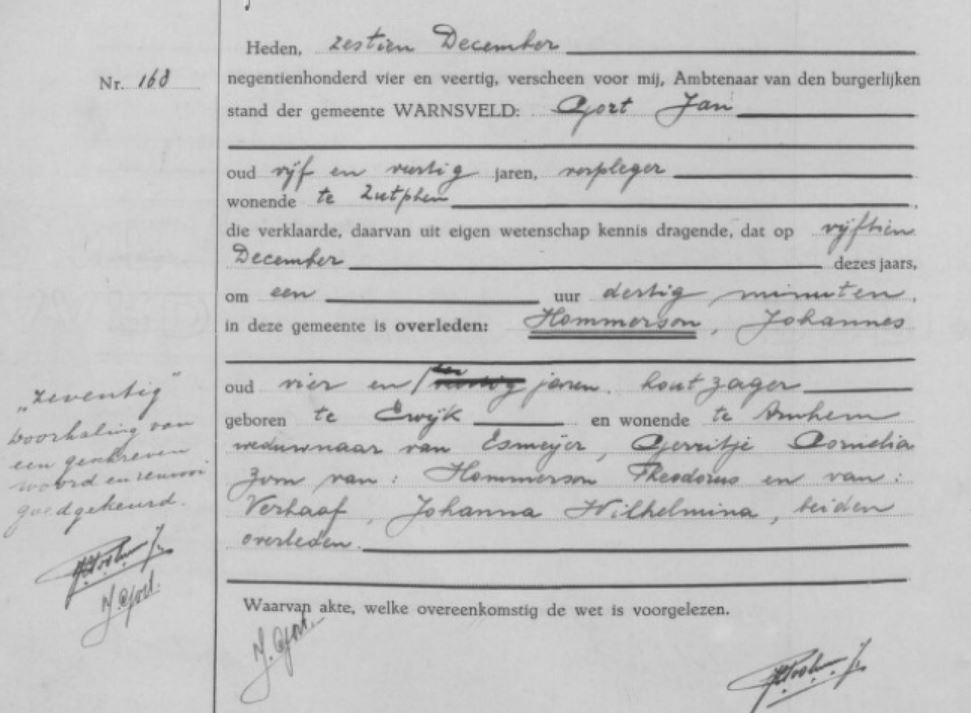 Heden, zestien December
Nr. 168
negentienhonderd vier en veertig, verscheen voor mij, Ambtenaar van den burgerlijken
stand der gemeente WARNSVELD: Gort Jan
oud vijf en veertig jaren, verpleger
wonende te Zutphen
die verklaarde, daarvan uit eigen wetenschap kennis dragende, dat op vijftien
December dezes jaars,
om een uur dertig minuten,
in deze gemeente is overleden: Hommerson, Johannes
oud vier en jaren, houtzager
geboren te Ewijk en wonende te Arnhem
weduwnaar van Esmeijer, Gerritje Cornelia
zoon van: Hommerson Theodorus en van:
Verhaaf, Johanna Wilhelmina, beiden
overleden.
"zeventig"
doorhaling van
een geschreven
woord en renvooi
goedgekeurd.
J. Gort.
Waarvan akte, welke overeenkomstig de wet is voorgelezen.
J. Gort.